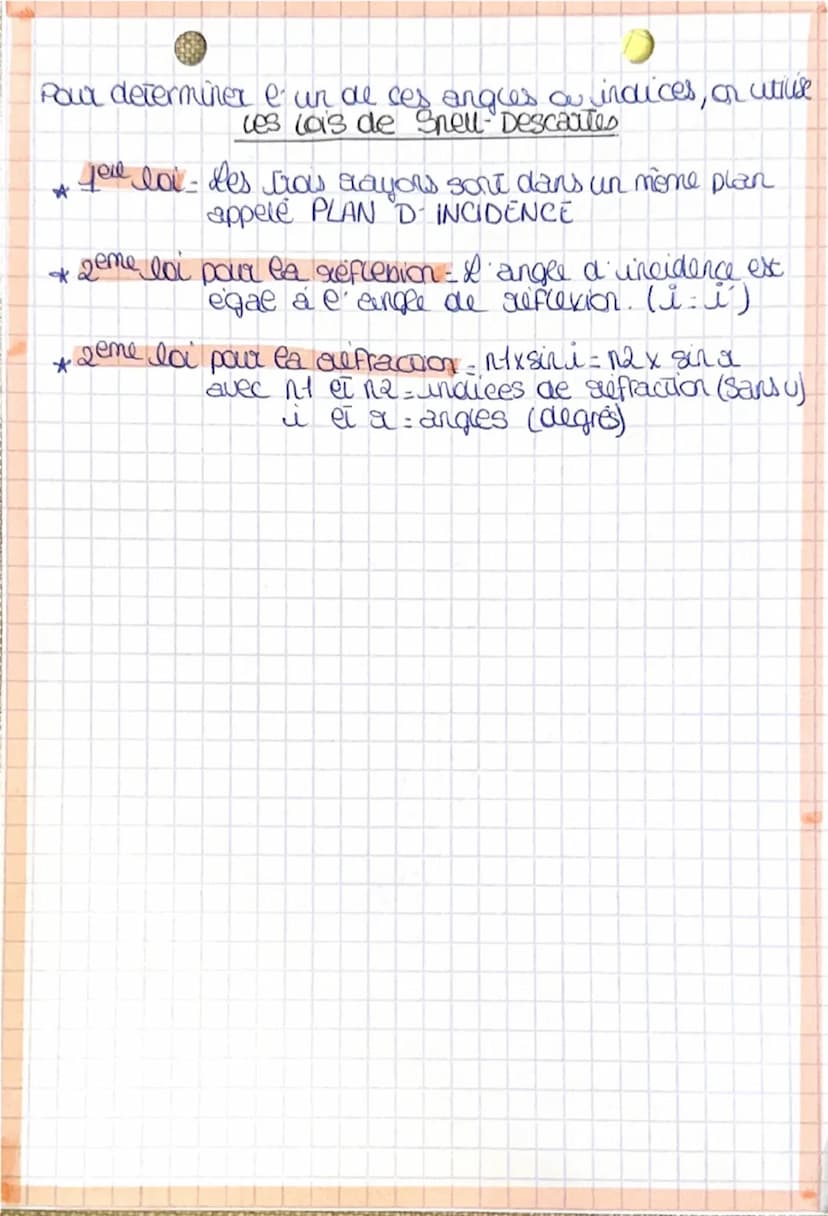 Pour determiner l'un de ces angles ou indices, on utilise
les lois de Snell-Descartes
* 1ere loi = Les trois rayons sont dans un même plan
appelé PLAN D'INCIDENCE
* 2eme loi pour la réflexion = L'angle d'incidence est
égal à l'angle de réflexion. (i = i')
* 2eme loi pour la réfraction = n1 x sin i = n2 x sin r
avec n1 et n2 = indices de réfraction (sans u)
i et r = angles (degrés)